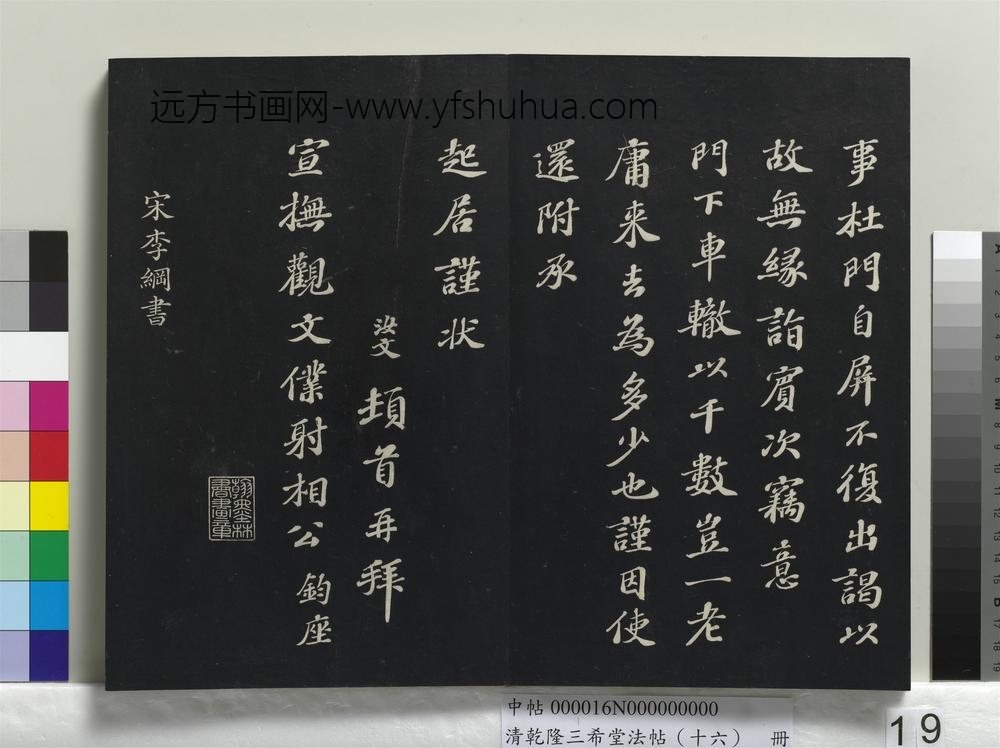 远方书画网-www.yfshuhua.com
事杜門自屏不復出謁以
故無縁詣賓次竊意
門下車轍以千數豈一老
庸来去為多少也謹因使
還附承
起居謹状
汝文 頓首再拜
宣撫觀文僕射相公 鈞座
翰墨林書畫章
宋李綱書
中帖 000016N000000000
清乾隆三希堂法帖（十六） 冊
19